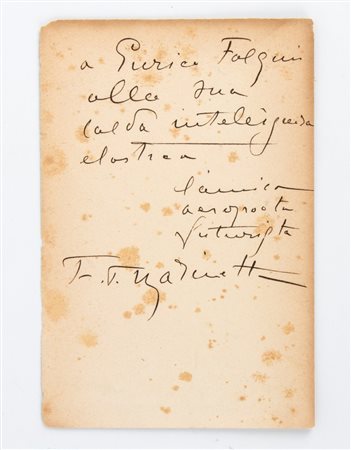 a Enrico Falqui
alla sua
calda intelligenza
elastica
l'amico
aeropoeta
futurista
F. T. Marinetti